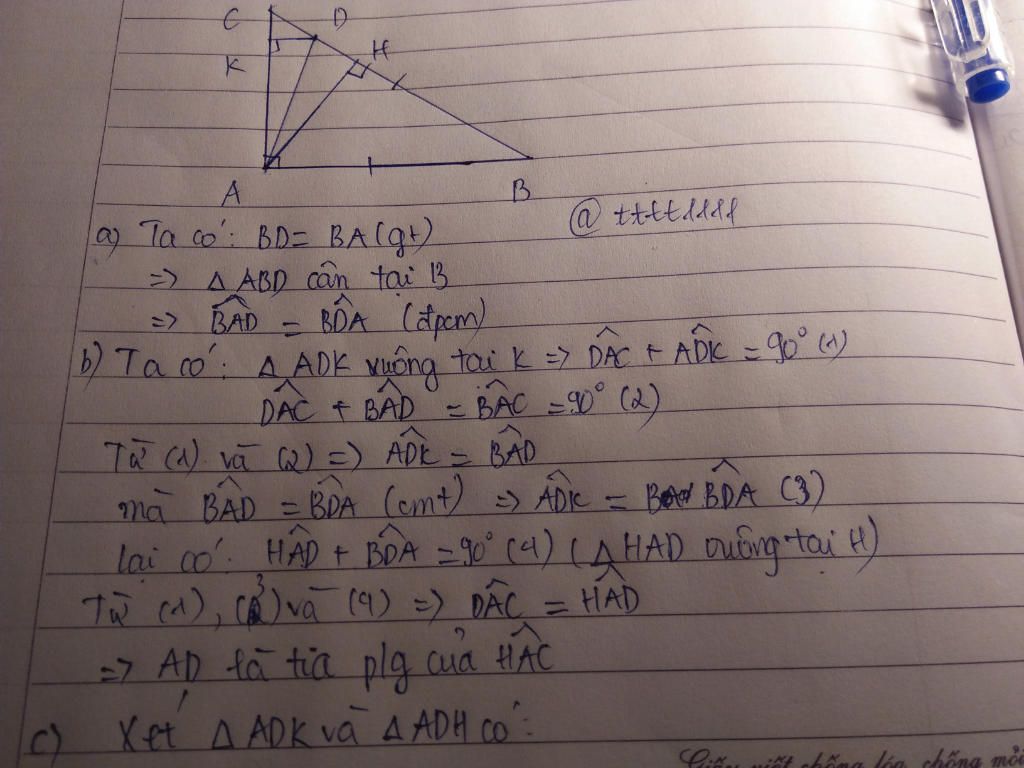 C D
H
K
A B
@ tttt1111
a) Ta có: BD = BA (gt)
=> Δ ABD cân tại B
=> BAD̂ = BDÂ (đpcm)
b) Ta có: Δ ADK vuông tại K => DAĈ + ADK̂ = 90° (1)
DAĈ + BAD̂ = BAĈ = 90° (2)
Từ (1) và (2) => ADK̂ = BAD̂
mà BAD̂ = BDÂ (cmt) => ADK̂ = BDÂ (3)
lại có: HAD̂ + BDÂ = 90° (4) (Δ HAD vuông tại H)
Từ (1), (3) và (4) => DAĈ = HAD̂
=> AD là tia p/g của HAĈ
c) Xét Δ ADK và Δ ADH có:
Giấy viết chống lóa, chống mỏi